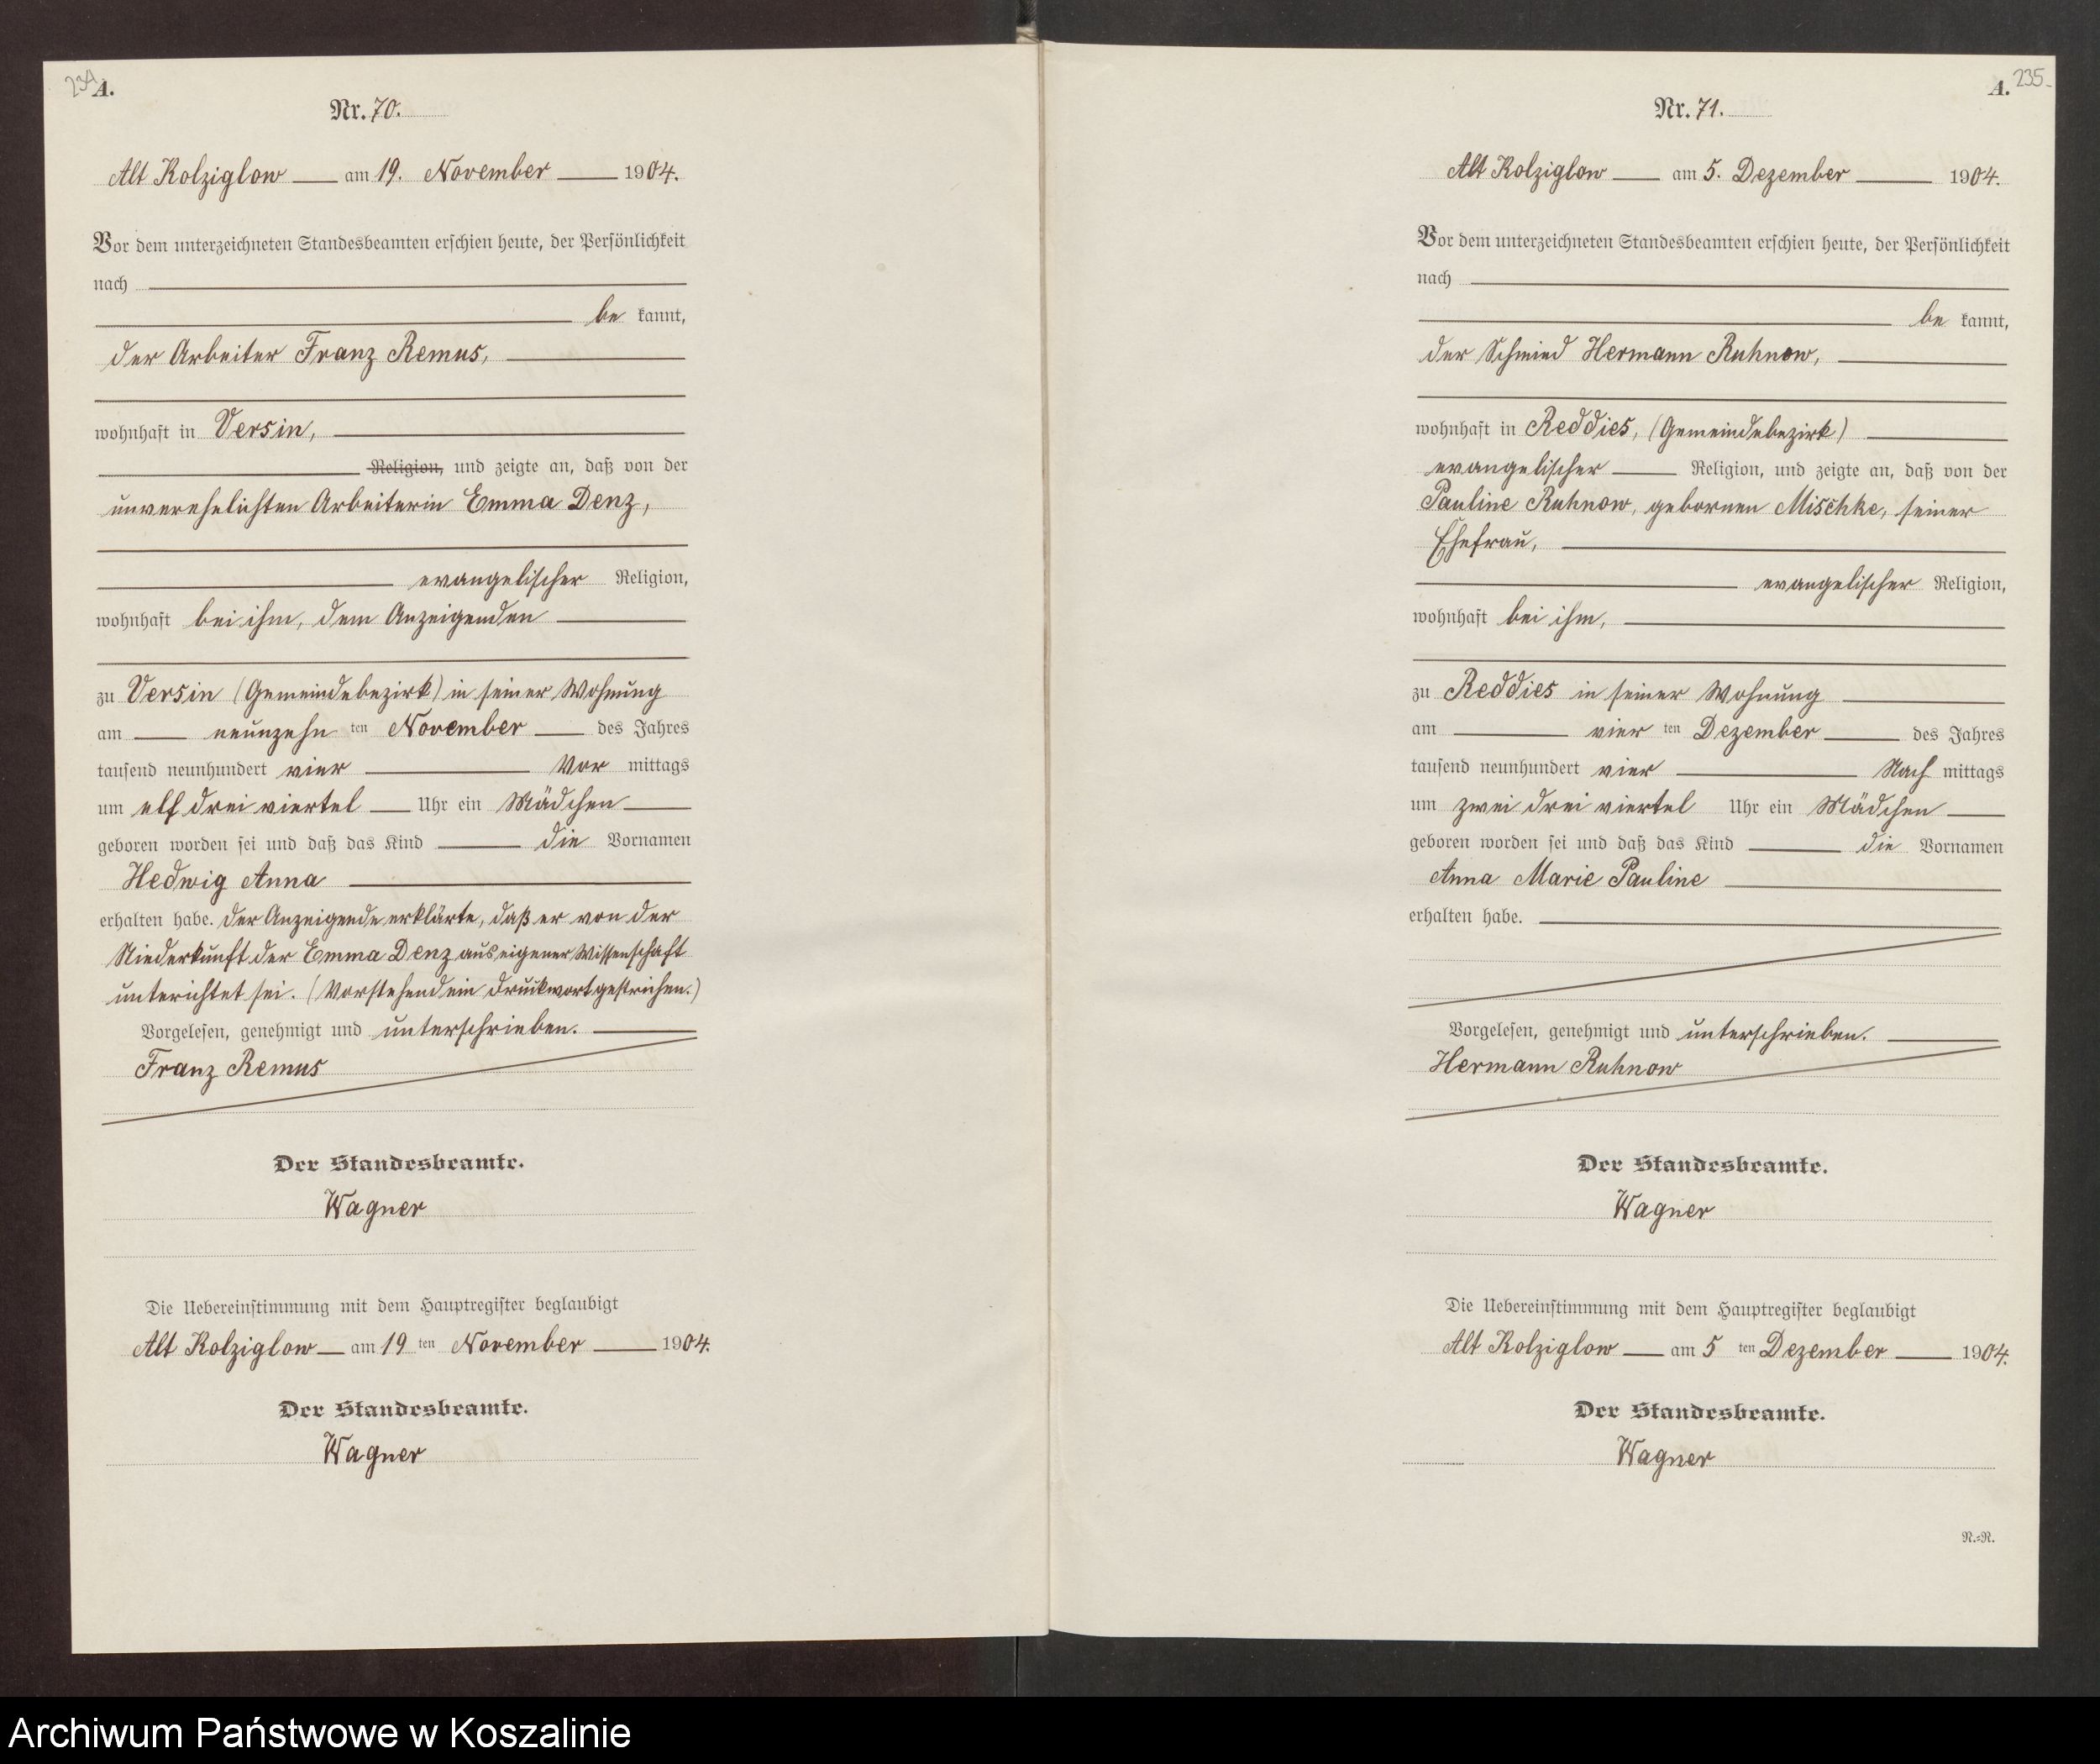 234
A.
Nr. 70.
Alt Kolziglow am 19. November 1904.
Vor dem unterzeichneten Standesbeamten erschien heute, der Persönlichkeit
nach
be kannt,
der Arbeiter Franz Remus,
wohnhaft in Versin,
Religion, und zeigte an, daß von der
unverehelichten Arbeiterin Emma Denz,
evangelischer Religion,
wohnhaft bei ihm, dem Anzeigenden
zu Versin (Gemeindebezirk) in seiner Wohnung
am neunzehn ten November des Jahres
tausend neunhundert vier Vor mittags
um elf drei viertel Uhr ein Mädchen
geboren worden sei und daß das Kind die Vornamen
Hedwig Anna
erhalten habe. Der Anzeigende erklärte, daß er von der
Niederkunft der Emma Denz aus eigener Wissenschaft
unterichtet sei. (Vorstehend ein Druckwort gestrichen.)
Vorgelesen, genehmigt und unterschrieben.
Franz Remus
Der Standesbeamte.
Wagner
Die Uebereinstimmung mit dem Hauptregister beglaubigt
Alt Kolziglow am 19 ten November 1904.
Der Standesbeamte.
Wagner
A.
235
Nr. 71.
Alt Kolziglow am 5. Dezember 1904.
Vor dem unterzeichneten Standesbeamten erschien heute, der Persönlichkeit
nach
be kannt,
der Schmied Hermann Ruhnow,
wohnhaft in Reddies, (Gemeindebezirk)
evangelischer Religion, und zeigte an, daß von der
Pauline Ruhnow, gebornen Mischke, seiner
Ehefrau,
evangelischer Religion,
wohnhaft bei ihm,
zu Reddies in seiner Wohnung
am vier ten Dezember des Jahres
tausend neunhundert vier Nach mittags
um zwei drei viertel Uhr ein Mädchen
geboren worden sei und daß das Kind die Vornamen
Anna Marie Pauline
erhalten habe.
Vorgelesen, genehmigt und unterschrieben.
Hermann Ruhnow
Der Standesbeamte.
Wagner
Die Uebereinstimmung mit dem Hauptregister beglaubigt
Alt Kolziglow am 5 ten Dezember 1904.
Der Standesbeamte.
Wagner
N.=R.
Archiwum Państwowe w Koszalinie